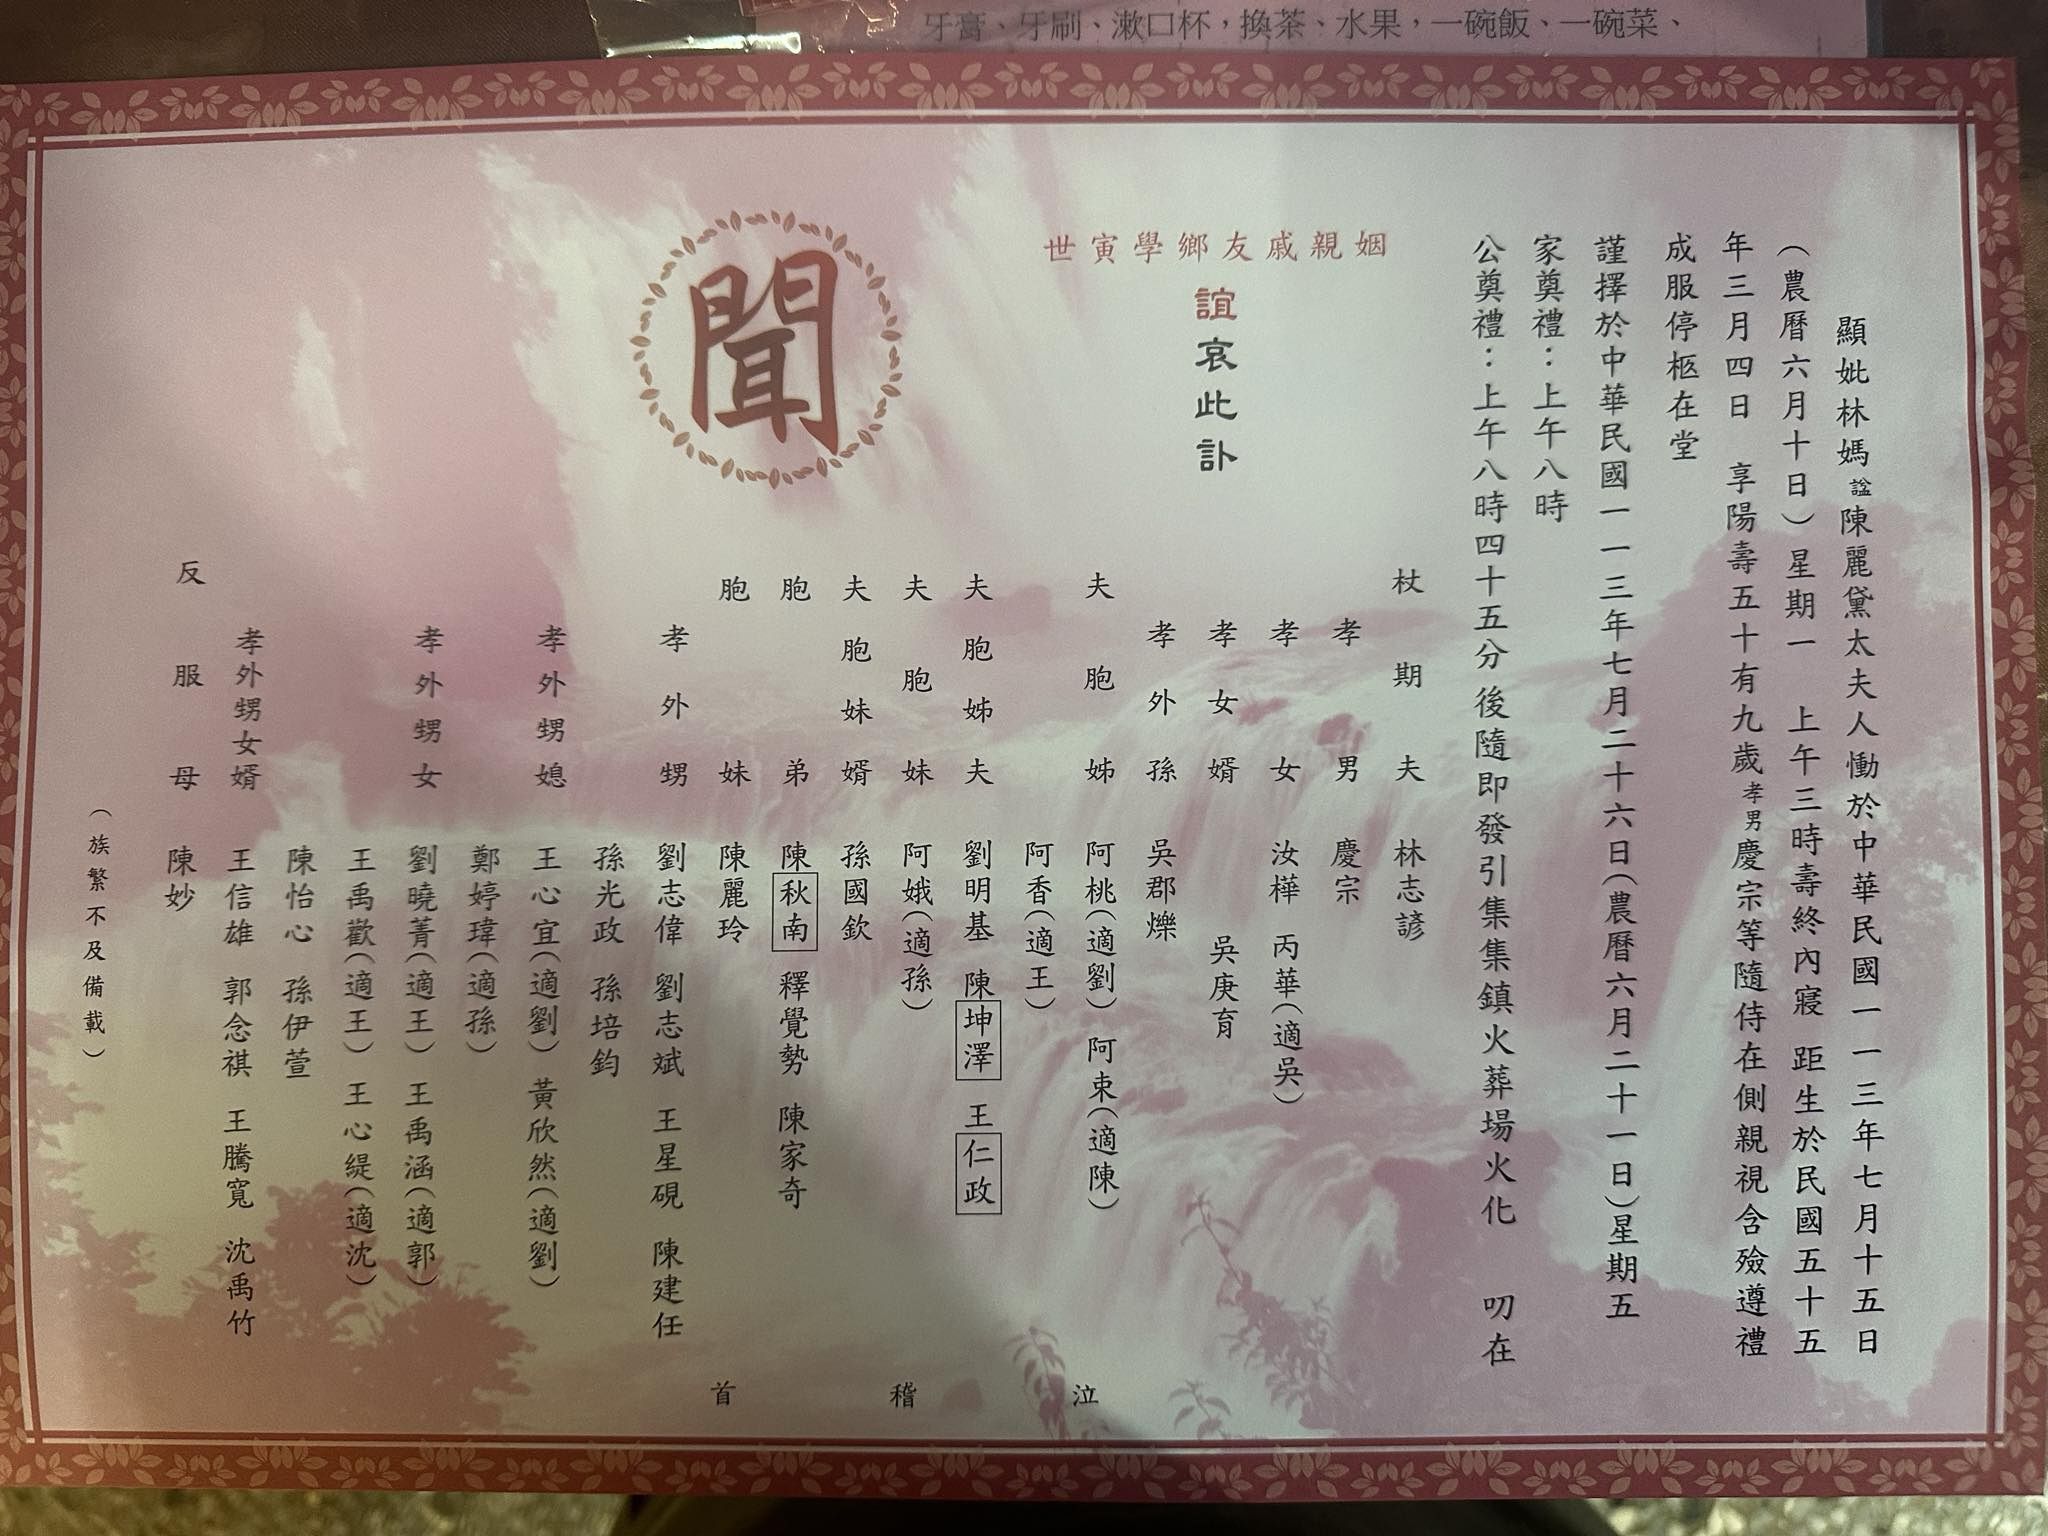 牙膏、牙刷、漱口杯，換茶、水果，一碗飯、一碗菜、
顯妣林媽諡陳麗黛太夫人慟於中華民國一一三年七月十五日
（農曆六月十日）星期一　上午三時壽終內寢　距生於民國五十五
年三月四日　享陽壽五十有九歲孝男慶宗等隨侍在側親視含殮遵禮
成服停柩在堂
謹擇於中華民國一一三年七月二十六日（農曆六月二十一日）星期五
家奠禮：上午八時
公奠禮：上午八時四十五分後隨即發引集集鎮火葬場火化　叨在
姻親戚友鄉學寅世
誼哀此訃
聞
杖期夫　林志諺
孝男　慶宗
孝女　汝樺　丙華（適吳）
孝女婿　吳庚育
孝外孫　吳郡爍
夫胞姊　阿桃（適劉）　阿束（適陳）
阿香（適王）
夫胞姊夫　劉明基　陳坤澤　王仁政
夫胞妹　阿娥（適孫）
夫胞妹婿　孫國欽
胞弟　陳秋南　釋覺勢　陳家奇
胞妹　陳麗玲
孝外甥　劉志偉　劉志斌　王星硯　陳建任
孫光政　孫培鈞
孝外甥媳　王心宜（適劉）　黃欣然（適劉）
鄭婷瑋（適孫）
孝外甥女　劉曉菁（適王）　王禹涵（適郭）
王禹歡（適王）　王心緹（適沈）
陳怡心　孫伊萱
孝外甥女婿　王信雄　郭念祺　王騰寬　沈禹竹
反服母　陳妙
（族繁不及備載）
泣稽首